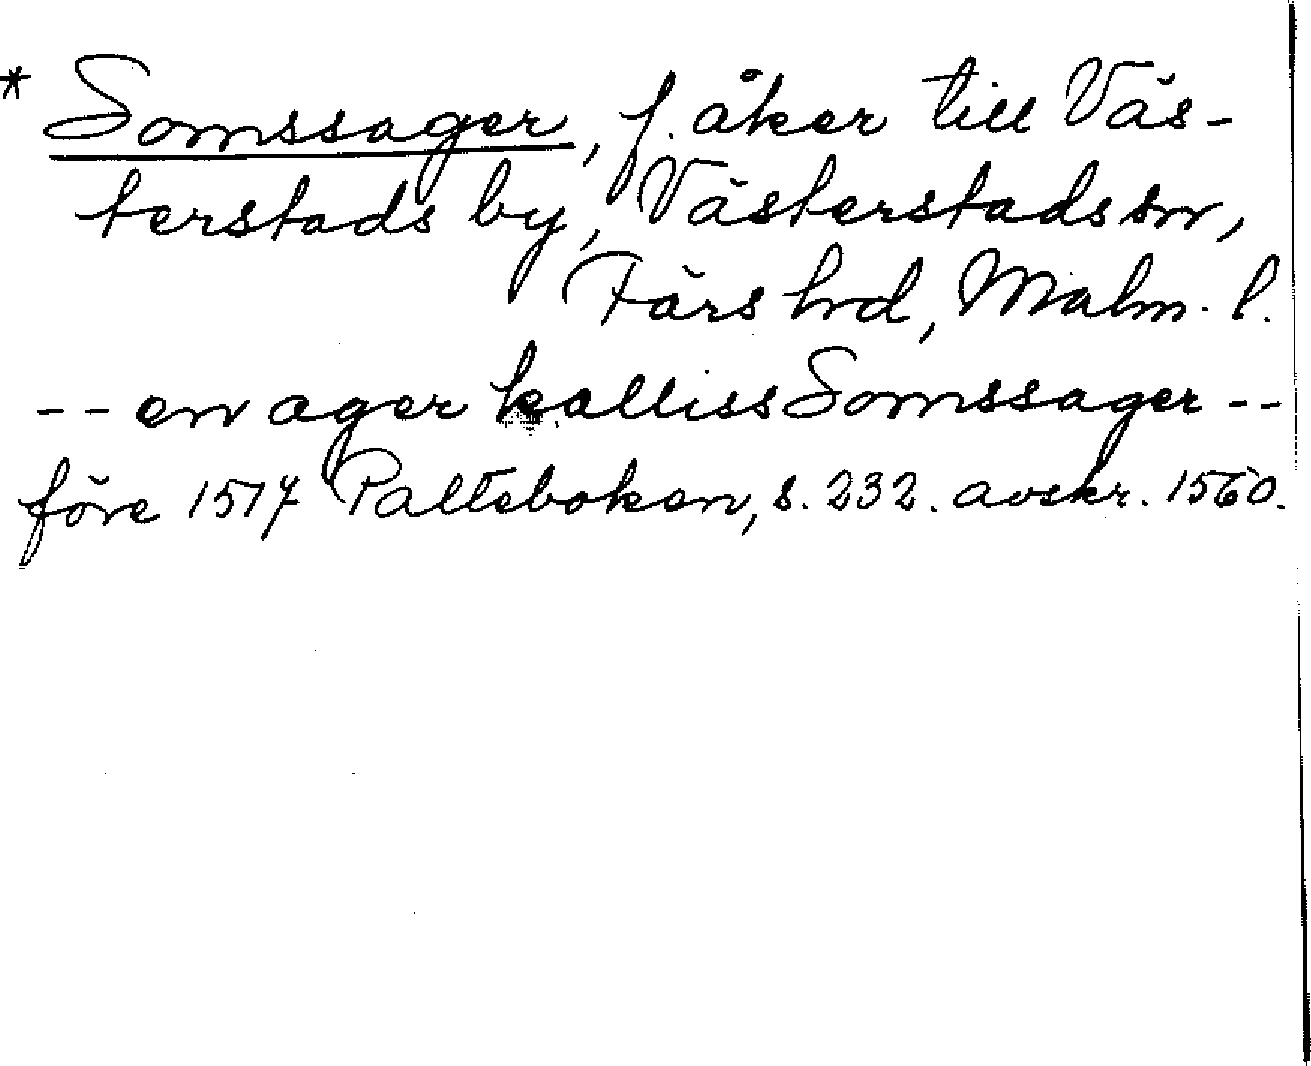 * Somssager, f. åker till Väs-
terstads by, Västerstads sn,
Färs hrd, Malm. l.
-- en ager kalliss Somssager --
före 1517 Palteboken, s. 232. avskr. 1560.